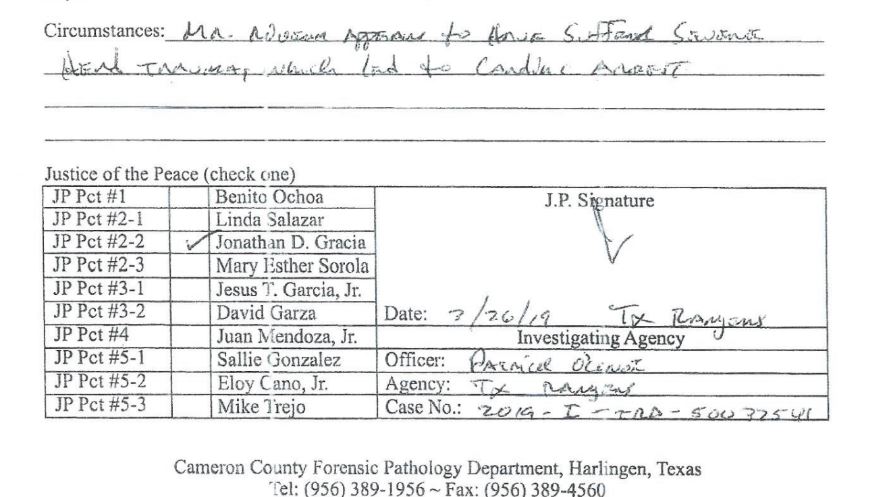 Circumstances: Mr. appears to have suffered severe
Head trauma, which led to Cardiac Arrest
Justice of the Peace (check one)
JP Pct #1 Benito Ochoa J.P. Signature
JP Pct #2-1 Linda Salazar
JP Pct #2-2 ✓ Jonathan D. Gracia
JP Pct #2-3 Mary Esther Sorola
JP Pct #3-1 Jesus T. Garcia, Jr.
JP Pct #3-2 David Garza Date: 3/26/19 Tx Rangers
JP Pct #4 Juan Mendoza, Jr. Investigating Agency
JP Pct #5-1 Sallie Gonzalez Officer: Patrick
JP Pct #5-2 Eloy Cano, Jr. Agency: Tx Rangers
JP Pct #5-3 Mike Trejo Case No.: 2019-I-TRD-50032541
Cameron County Forensic Pathology Department, Harlingen, Texas
Tel: (956) 389-1956 ~ Fax: (956) 389-4560